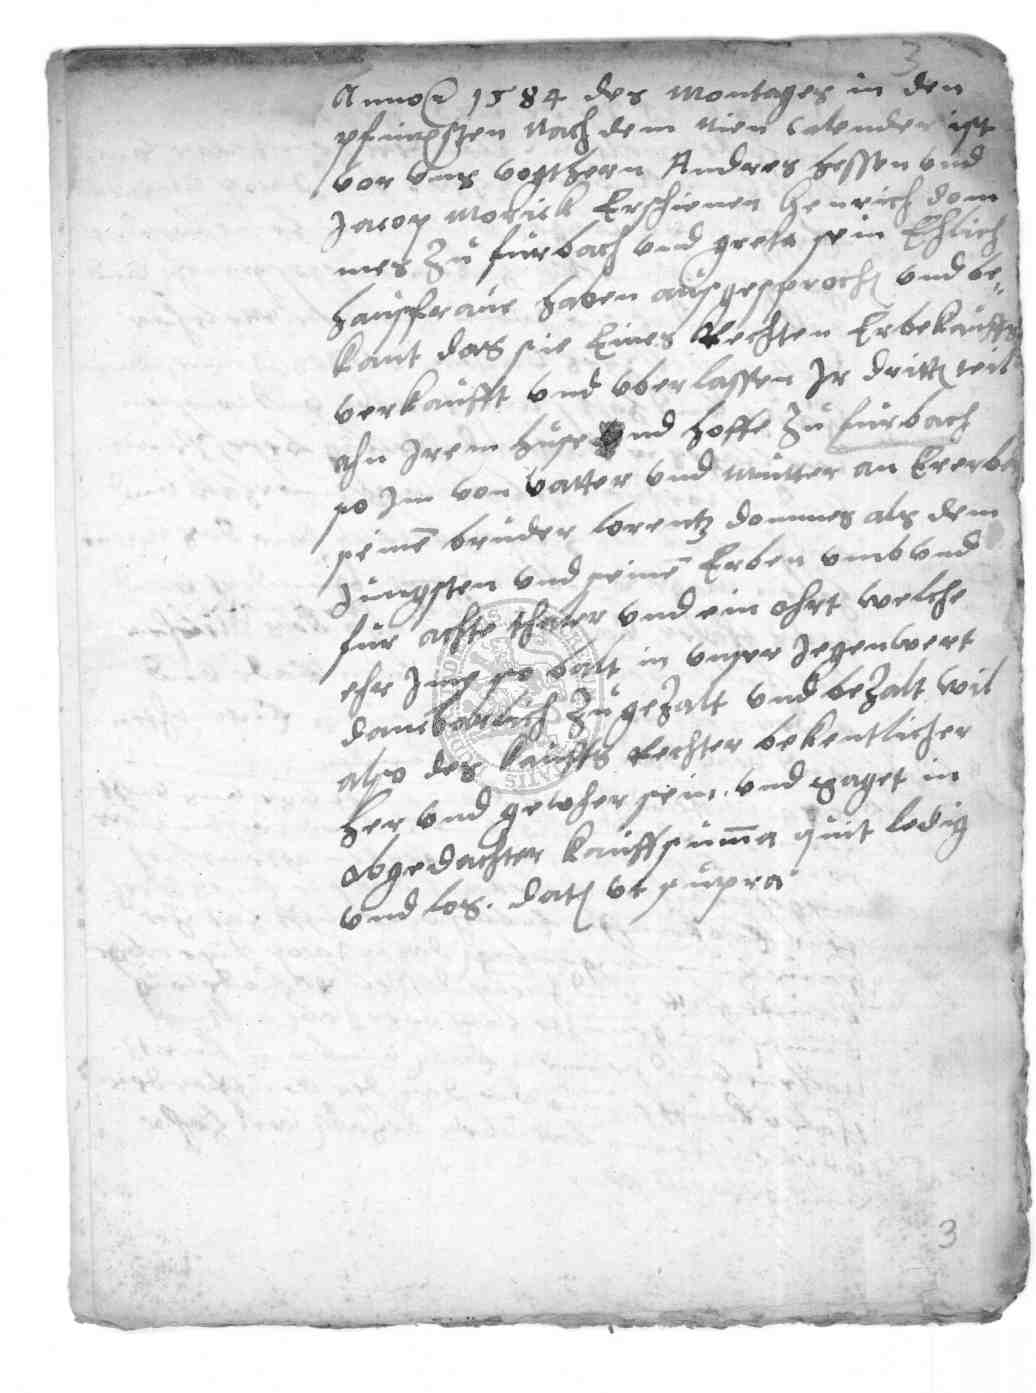 3
Anno 1584 des Montages in den
pfingsten Nach dem Nien Calender ist
vor vns vogthern Andres hessen vnd
Jacop Morick Erschienen henrich dom
mes Zu furbach vnd greta sein Ehlich
hausfraue haben ausgesproch vnd be„
kant das sie Eines Rechten Erbekauffs
verkaufft vnd vberlassen Jr dritt teil
ahn Jrem huse vnd hoffe Zu furbach
so Jm von vatter vnd Mutter an Ererbe
seinē bruder lorentz dommes als dem
Jungsten vnd seinē Erben vmb vnd
fur achte thaler vnd ein ohrt welche
ehr Jme so balt in vnser Jegenwert
dancbarlich Zugezalt vnd bezalt wil
also des kauffts Rechter bekentlicher
her vnd gewher sein. vnd saget in
obgedachter kauffsuma quit ledig
vnd los. dat vt supra
3